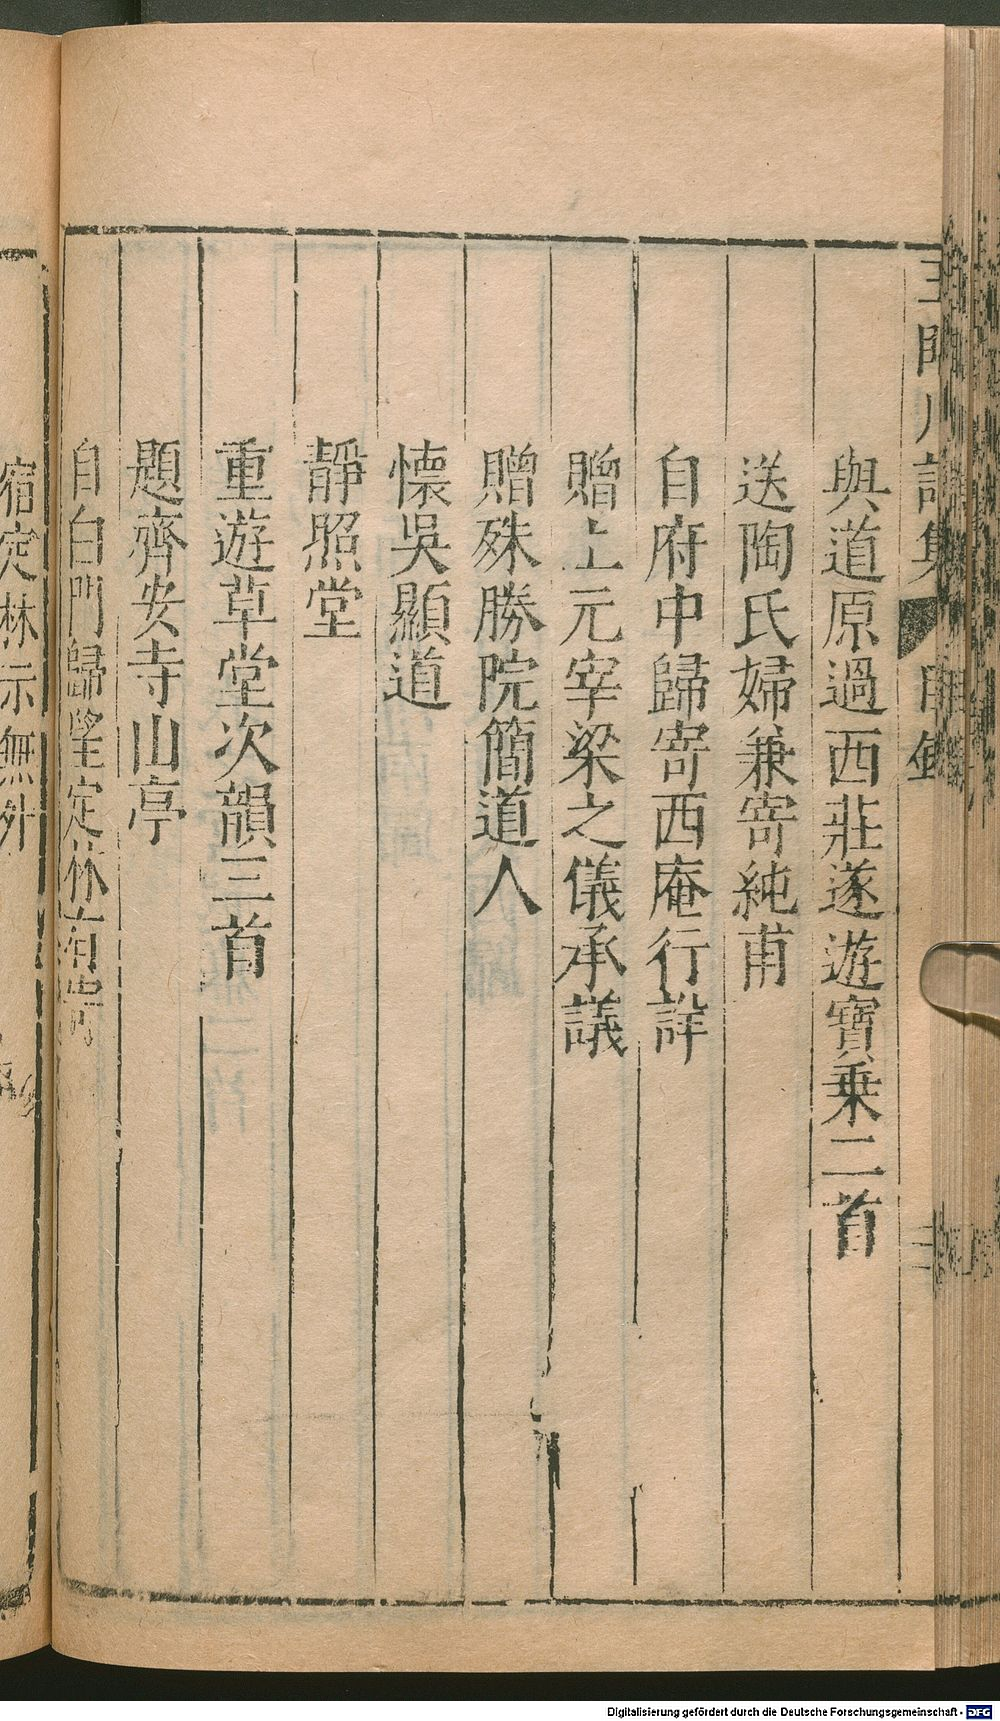 與道原過西莊遂遊寶乗二首
送陶氏婦兼寄純甫
自府中歸寄西庵行詳
贈上元宰梁之儀承議
贈殊勝院簡道人
懐吳顯道
靜照堂
重遊草堂次韻三首
題齊安寺山亭
自白門歸望定林有寄
宿定林示無外
Digitalisierung gefördert durch die Deutsche Forschungsgemeinschaft - DFG